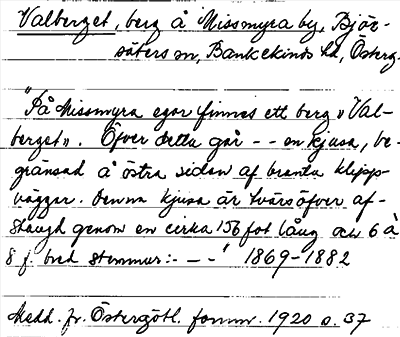 Valberget, berg å Missmyra by, Björ-
säters sn, Bankekinds hd, Österg.
"På Missmyra egor finnes ett berg "Val-
berget". Öfver detta går - - en kjusa, be-
gränsad å östra sidan af branta klipp-
väggar. Denna kjusa är tvärsöfver af-
stängd genom en cirka 156 fot lång och 6 à
8 f. bred stenmur:- - -" 1869-1882
Medd. fr. Östergötl. fornm. 1920 s. 37